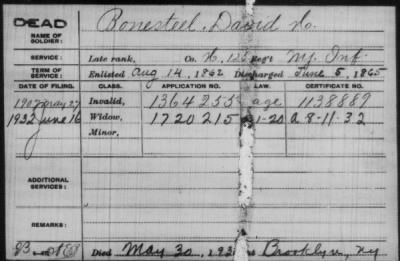 DEAD
NAME OF SOLDIER: Bonesteel, David
SERVICE: Late rank, Co. H, 12 Reg't N.Y. Inf.
TERM OF SERVICE: Enlisted Aug 14, 1862 Discharged June 5, 1865
DATE OF FILING. CLASS. APPLICATION NO. LAW. CERTIFICATE NO.
1907 May 27 Invalid, 1364255 age 1138889
1932 June 16 Widow, 1720215 5-1-20 A 8-11-32
Minor,
ADDITIONAL SERVICES:
REMARKS:
Died May 30, 193 Brooklyn, NY